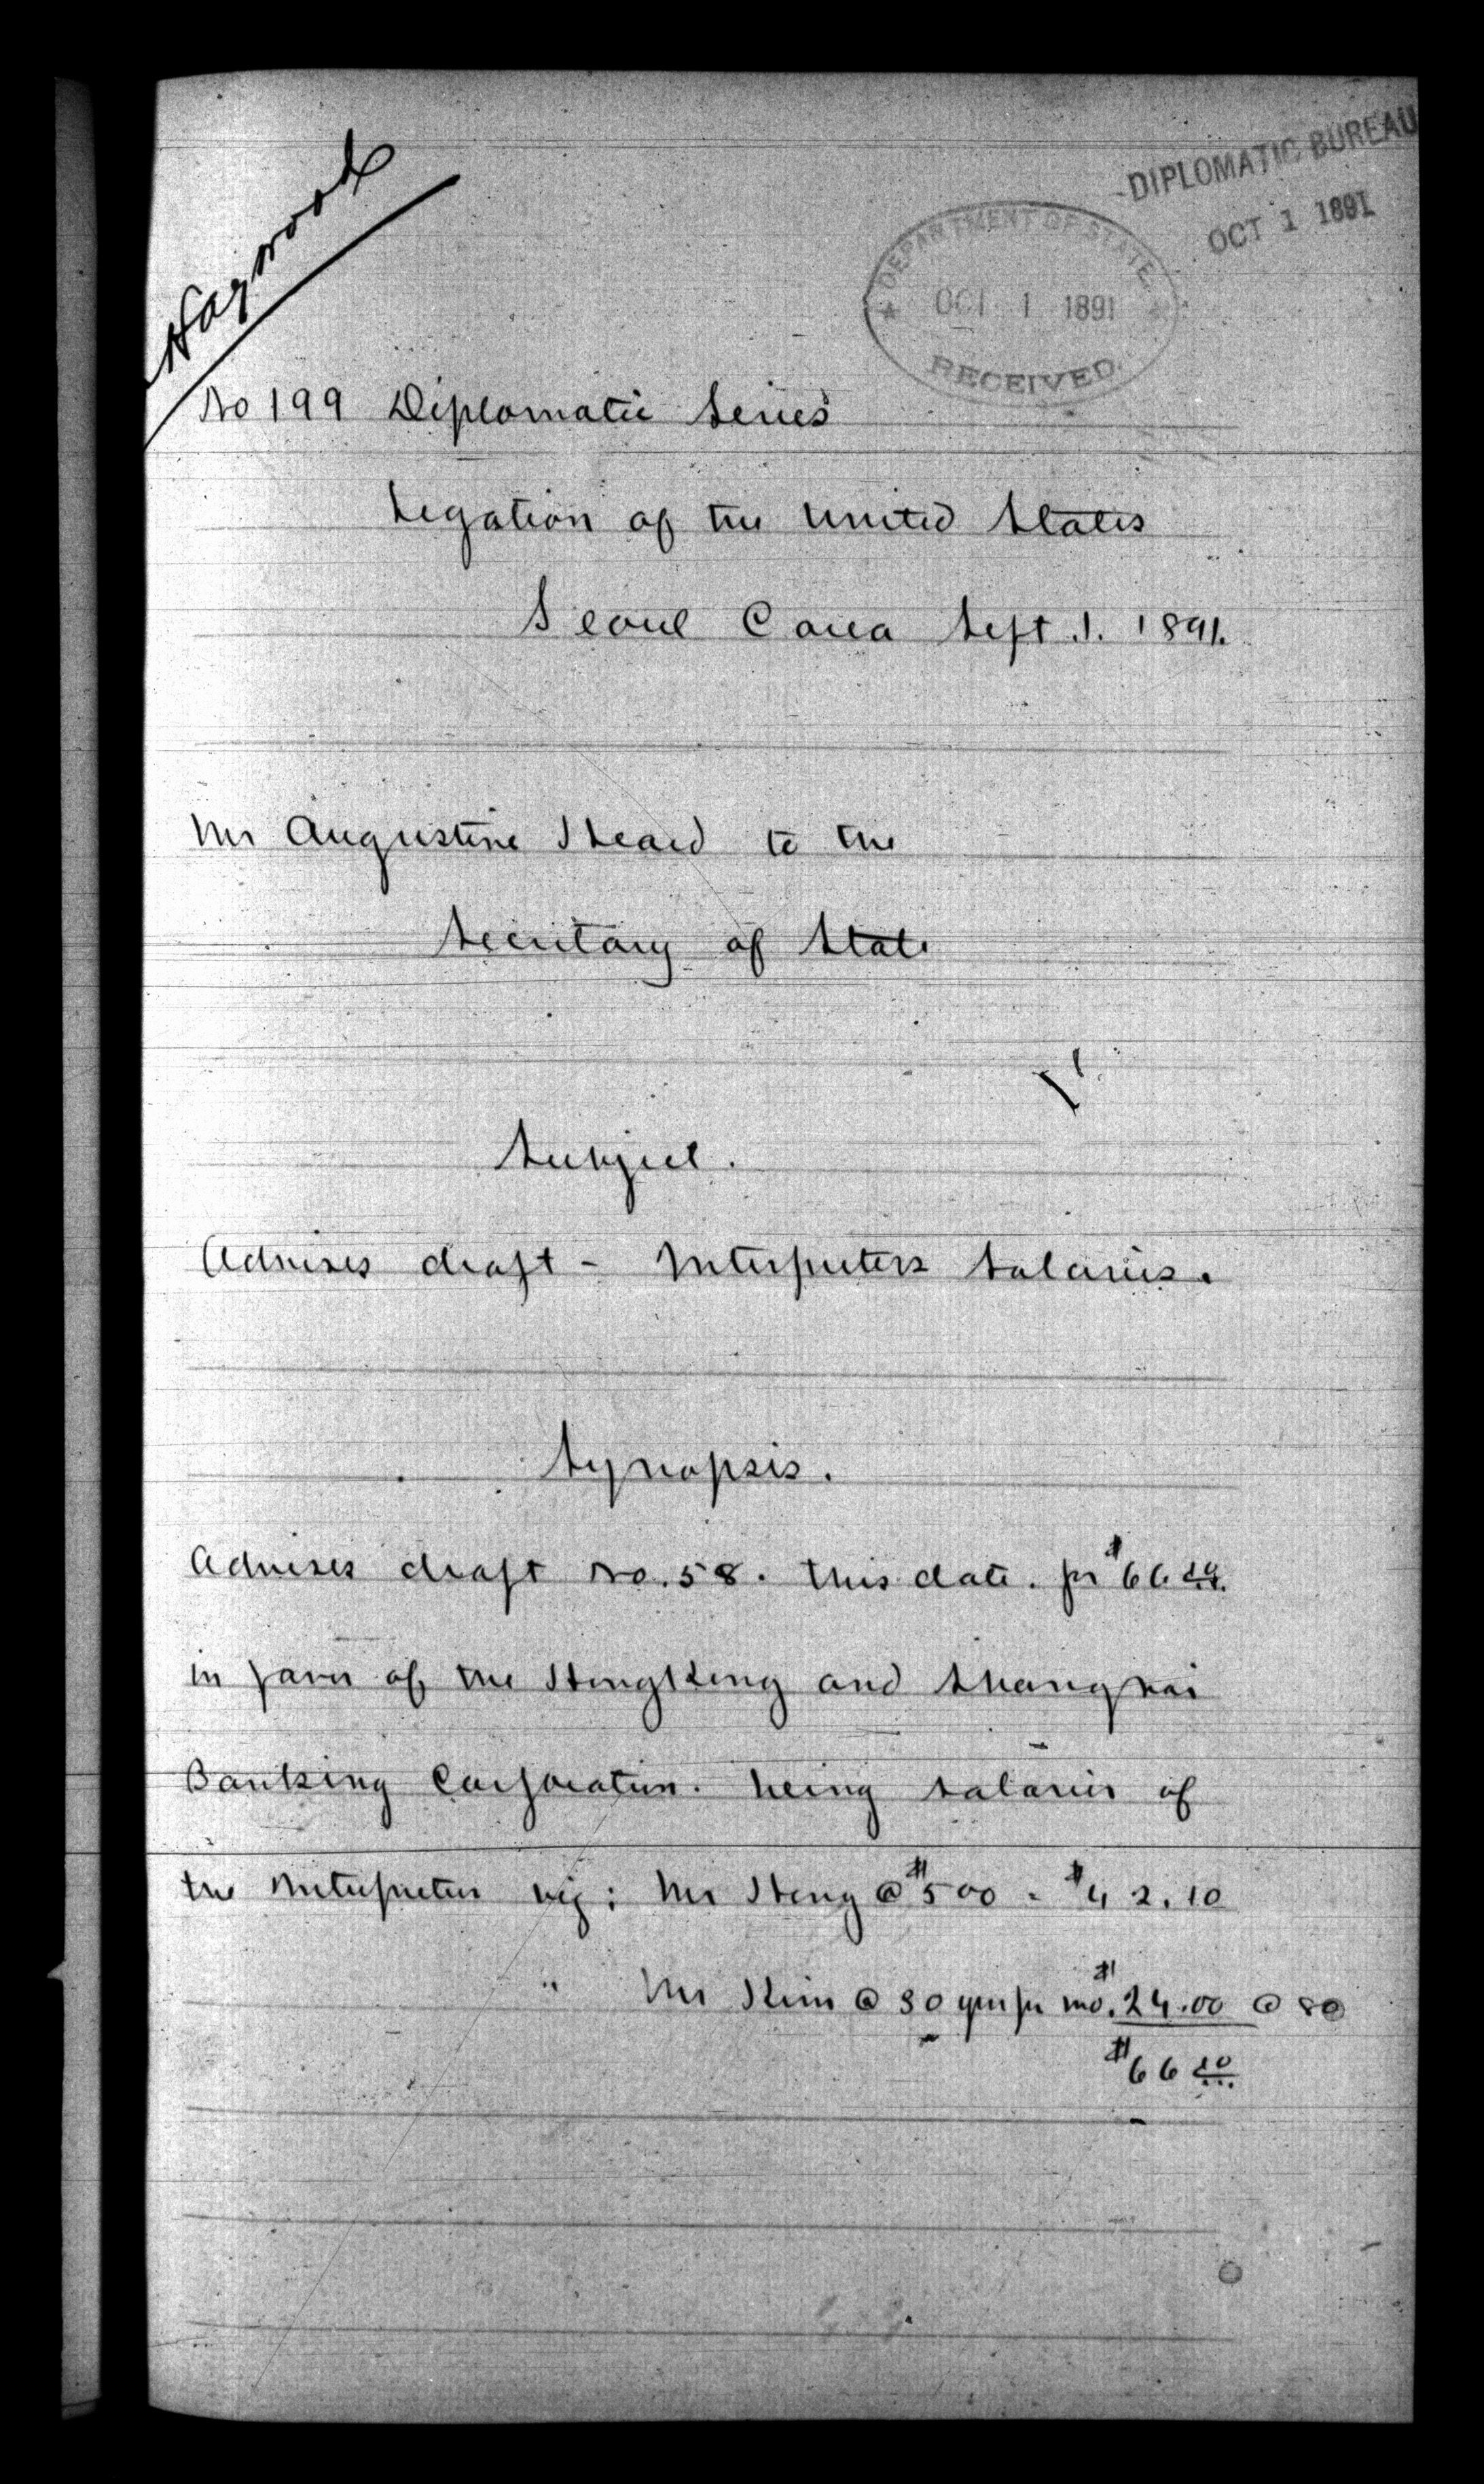 Haywood
DIPLOMATIC BUREAU
OCT 1 1891
DEPARTMENT OF STATE
OCT 1 1891
RECEIVED.
No 199 Diplomatic Series
Legation of the United States
Seoul Corea Sept. 1. 1891.
Mr Augustine Heard to the
Secretary of State
Subject.
Advises draft - Interpreters Salaries.
Synopsis.
Advises draft No. 58. this date. for $66 10/100.
in favor of the HongKong and Shanghai
Banking Corporation. being salaries of
the Interpreters viz: Mr Hong @ $500 = $42.10
" Mr Kim @ 30 yen per mo. $24.00 @ 80
$66 10/100